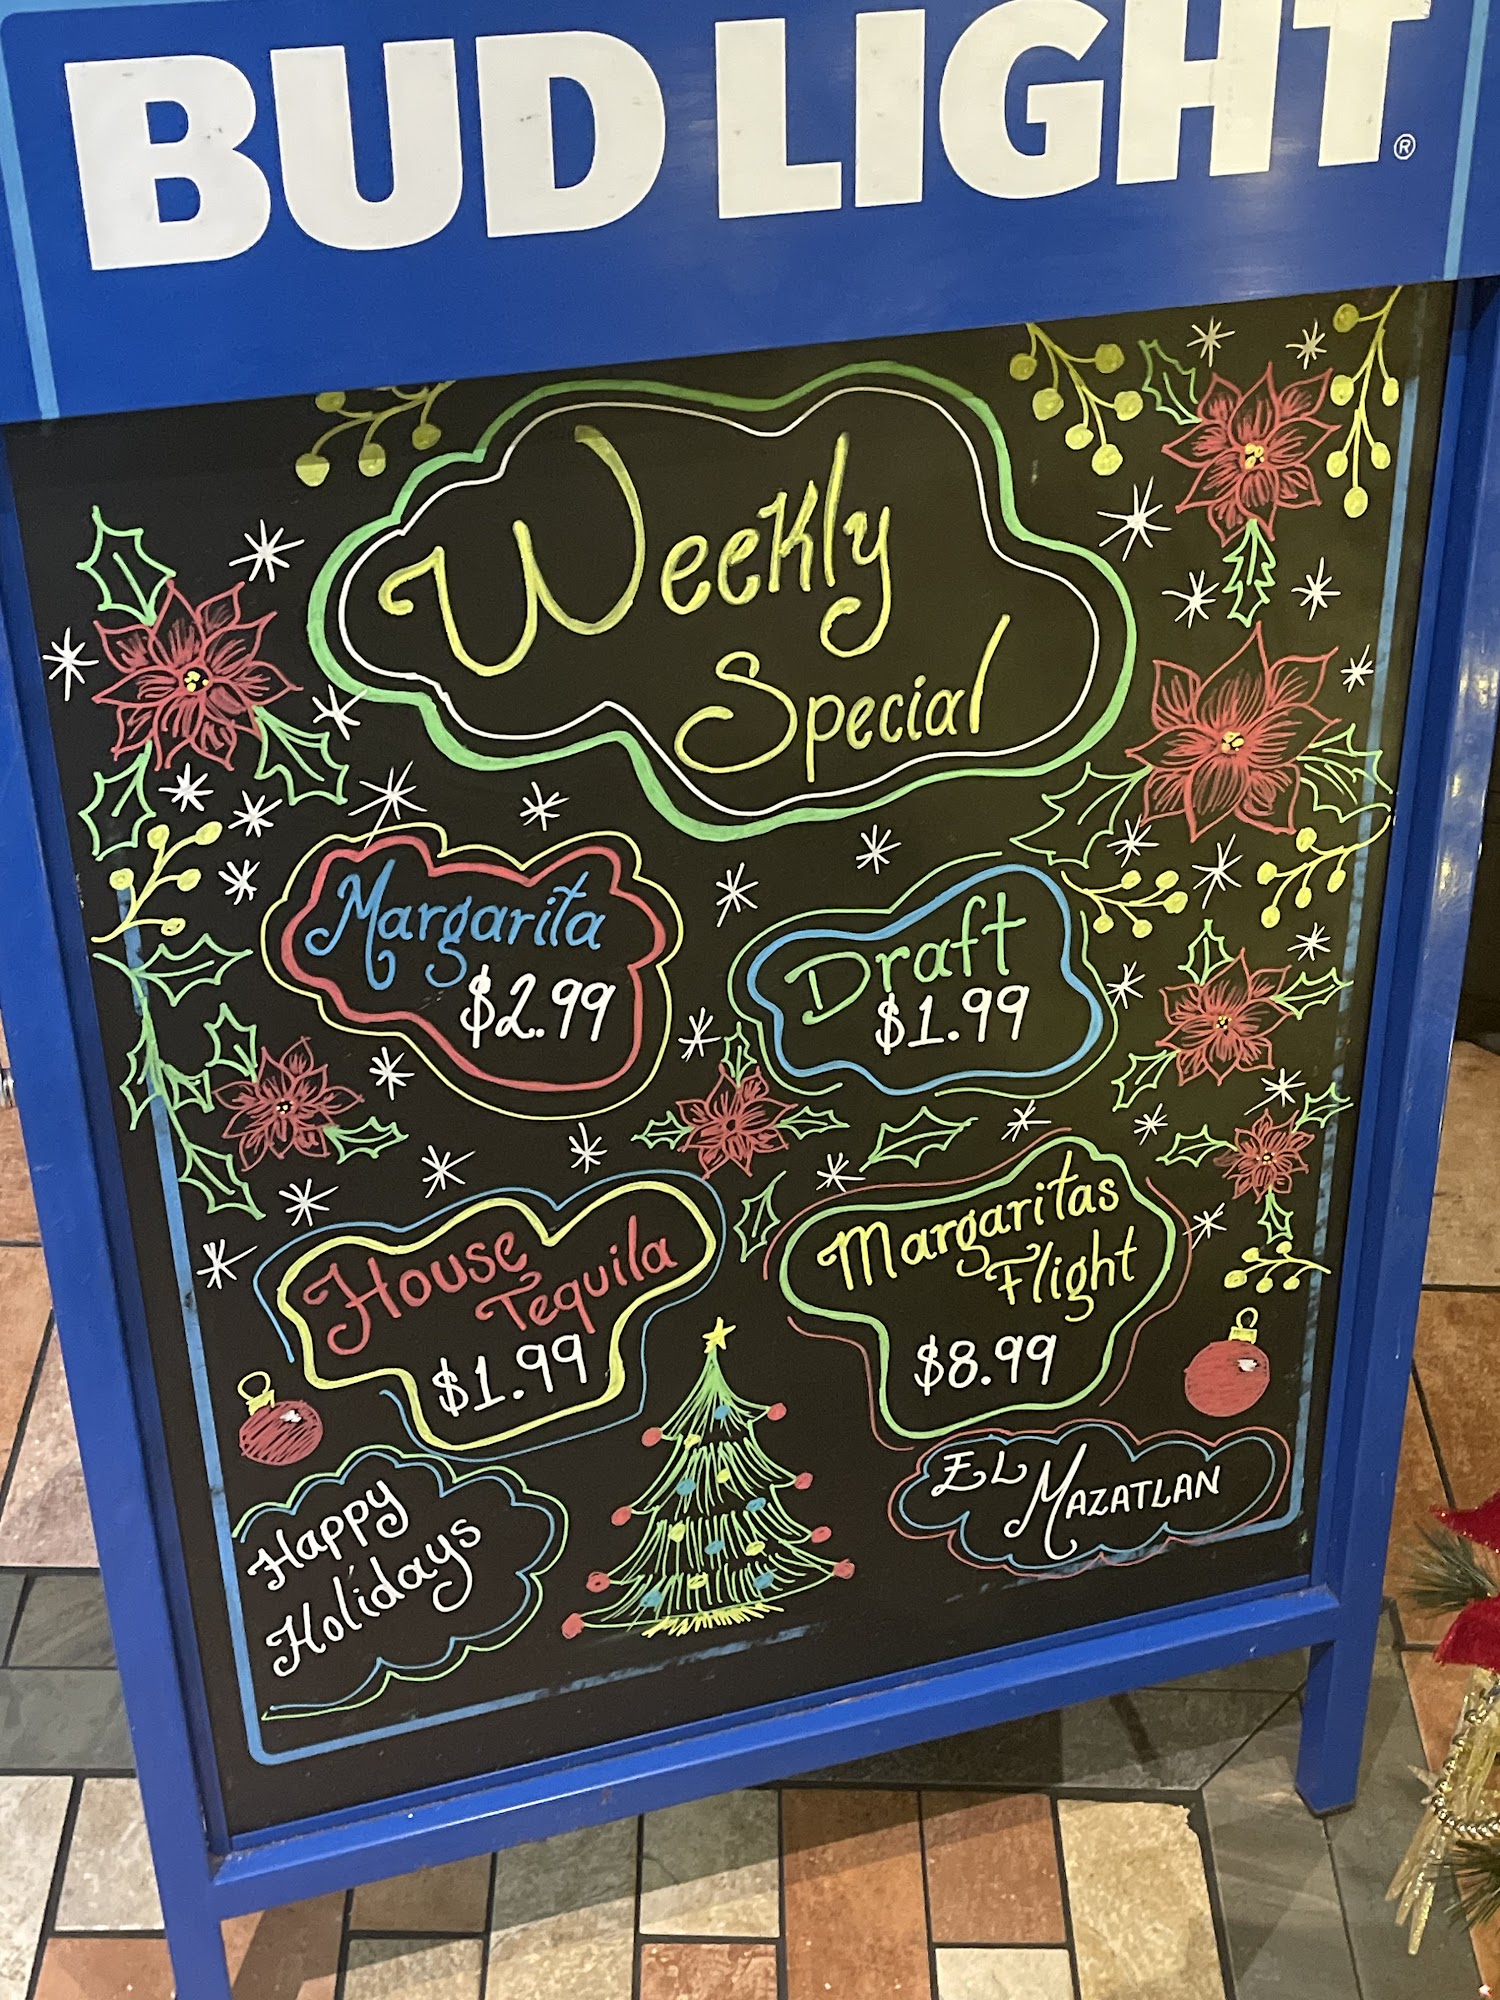 BUD LIGHT®
Weekly
Special
Margarita
$2.99
Draft
$1.99
House
Tequila
$1.99
Margaritas
Flight
$8.99
Happy
Holidays
EL
MAZATLAN